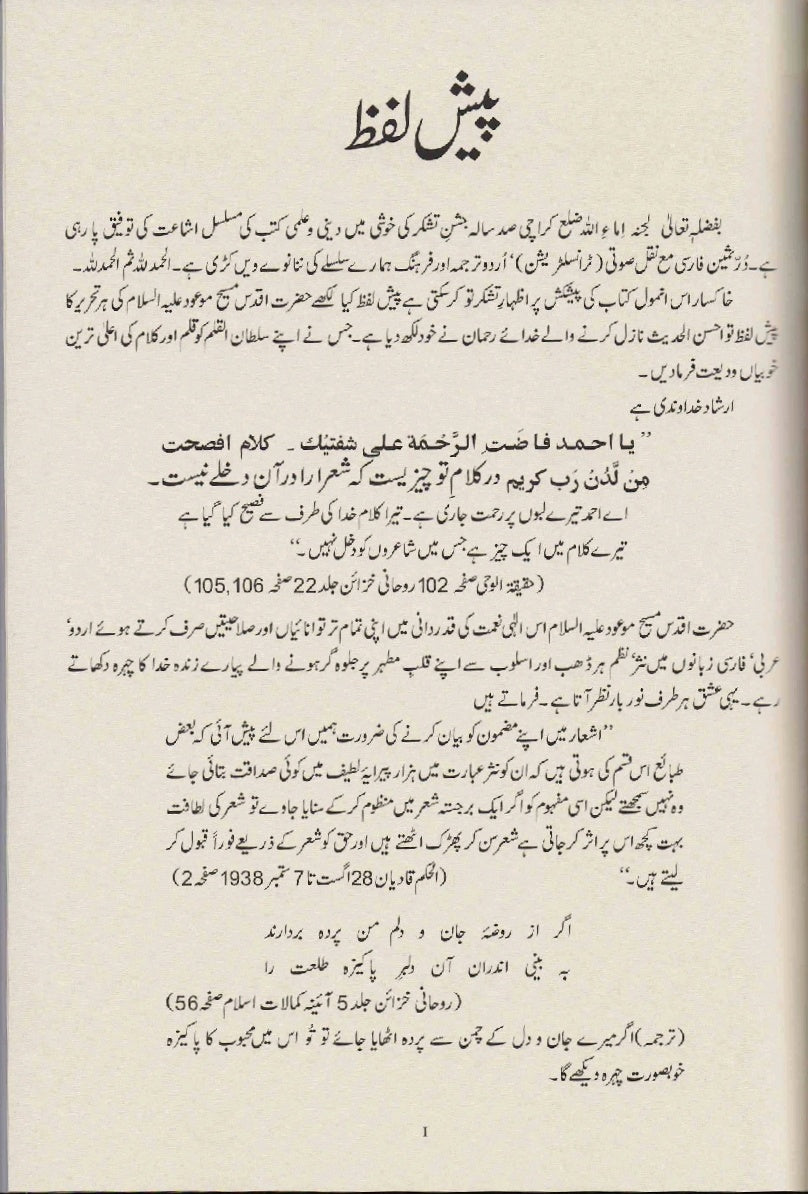 پیش لفظ
بفضلہٖ تعالیٰ لجنہ اماءِ اللہ ضلع کراچی صد سالہ جشنِ تشکر کی خوشی میں دینی و علمی کتب کی مسلسل اشاعت کی توفیق پا رہی
ہے۔ دُرِّثمین فارسی مع نقل صوتی (ٹرانسلٹریشن)، اُردو ترجمہ اور فرہنگ ہمارے سلسلے کی ننانوے ویں کڑی ہے۔ الحمدللہ ثم الحمدللہ۔
خاکسار اس انمول کتاب کی پیشکش پر اظہارِ تشکر تو کر سکتی ہے پیش لفظ کیا لکھے حضرت اقدس مسیح موعود علیہ السلام کی ہر تحریر کا
پیش لفظ تو احسن الحدیث نازل کرنے والے خدائے رحمان نے خود لکھ دیا ہے۔ جس نے اپنے سلطان القلم کو قلم اور کلام کی اعلیٰ ترین
خوبیاں ودیعت فرما دیں۔
ارشاد خداوندی ہے
”یا احمد فاضَتِ الرَّحْمَة علی شفتیْك ۔ کلام افصحت
مِنْ لَّدُنْ رَب کریم در کلامِ تو چیزیست کہ شعرا را درآن دخلے نیست۔
اے احمد تیرے لبوں پر رحمت جاری ہے۔ تیرا کلام خدا کی طرف سے فصیح کیا گیا ہے
تیرے کلام میں ایک چیز ہے جس میں شاعروں کو دخل نہیں۔“
(حقیقۃ الوحی صفحہ 102 روحانی خزائن جلد 22 صفحہ 105,106)
حضرت اقدس مسیح موعود علیہ السلام اس الٰہی نعمت کی قدردانی میں اپنی تمام تر توانائیاں اور صلاحیتیں صرف کرتے ہوئے اردو،
عربی، فارسی زبانوں میں نثر، نظم ہر ڈھب اور اسلوب سے اپنے قلبِ مطہر پر جلوہ گر ہونے والے پیارے زندہ خدا کا چہرہ دکھاتے
رہے۔ یہی عشق ہر طرف نور بار نظر آتا ہے۔ فرماتے ہیں
”اشعار میں اپنے مضمون کو بیان کرنے کی ضرورت ہمیں اس لئے پیش آئی کہ بعض
طبائع اس قسم کی ہوتی ہیں کہ ان کو نثر عبارت میں ہزار پیرایۂ لطیف میں کوئی صداقت بتائی جائے
وہ نہیں سمجھتے لیکن اسی مفہوم کو اگر ایک برجستہ شعر میں منظوم کر کے سنایا جاوے تو شعر کی لطافت
بہت کچھ اس پر اثر کر جاتی ہے شعر سن کر پھڑک اٹھتے ہیں اور حق کو شعر کے ذریعے فوراً قبول کر
لیتے ہیں۔“ (الحکم قادیان 28 اگست تا 7 ستمبر 1938 صفحہ 2)
اگر از روضۂ جان و دلم من پردہ بردارند
بہ بینی اندران آن دلبرِ پاکیزہ طلعت را
(روحانی خزائن جلد 5 آئینہ کمالات اسلام صفحہ 56)
(ترجمہ) اگر میرے جان و دل کے چمن سے پردہ اٹھایا جائے تو تُو اس میں محبوب کا پاکیزہ
خوبصورت چہرہ دیکھے گا۔
I